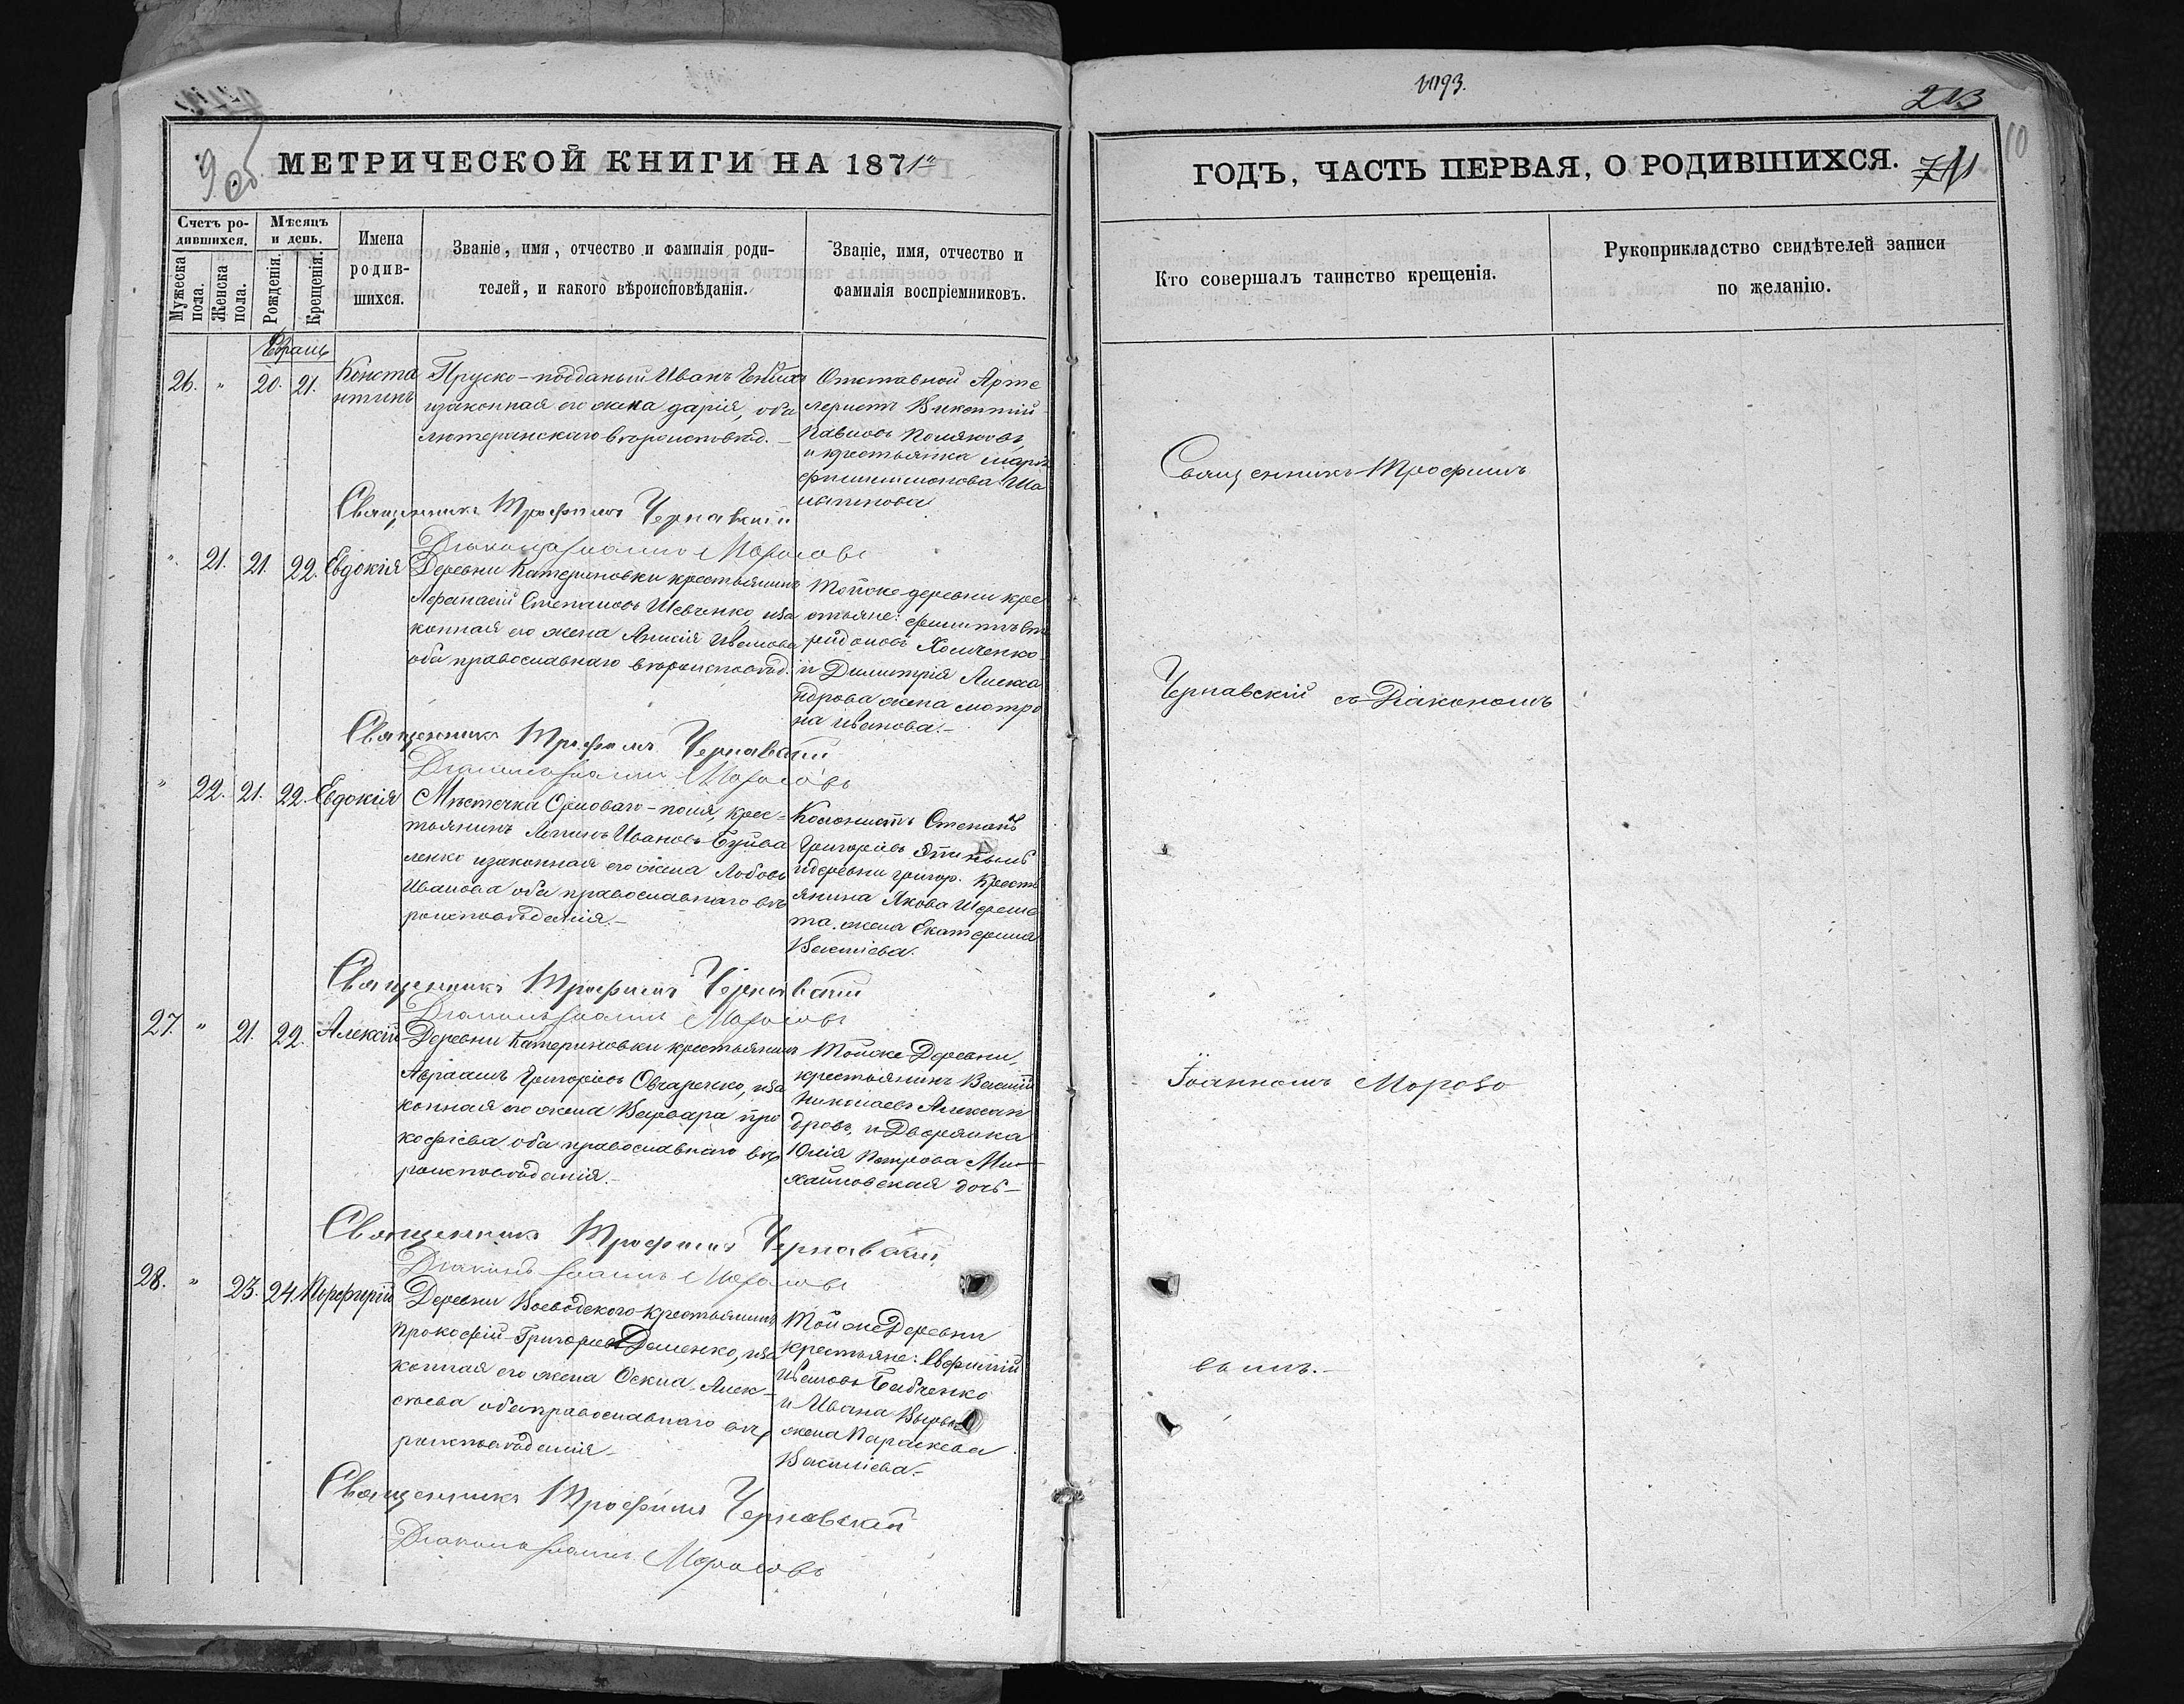 МЕТРИЧЕСКОЙ КНИГИ НА 1871й
Счетъ ро-
дившихся.
Мужеска
пола.
Женска
пола.
Мѣсяцъ
и день.
Рожденія.
Крещенія.
Имена
родив-
шихся.
Званіе, имя, отчество и фамилія роди-
телей, и какого вѣроисповѣданія.
Званіе, имя, отчество и
фамилія воспріемниковъ.
26. " 20. 21.
Конста
нтинъ
Пруско-подданый Иванъ
изаконная его жена дарія, оба
лютеранскаго вѣроисповѣд.
Отставной Арте
лерист Викентій
Павловъ Поляковъ,
и крестьянка марія
Священникъ Трофимъ Чернавскій
Діаконъ Іоаннъ Морозовъ
" 21. 21. 22. Евдокія
Деревни Катериновки крестьянинъ
Афанасій Степановъ Шевченко, иза
конная его жена Анисія Иванова
оба православнаго вѣроисповѣд.
Тойже деревни кре
стьяне: филиппъ Спи
ридоновъ Хомченко
и Димитрія Алекса
ндрова жена мотро
на Иванова.-
Священникъ Трофимъ Чернавскій
Діаконъ Іоаннъ Морозовъ
" 22. 21. 22. Евдокія
Мѣстечка Орловаго-поля, крес-
тьянинъ Иванов
ленко изаконная его жена Любовь
Иванова оба православнаго вѣ
роисповѣданія.-
Колонистъ Степанъ
Григорьевъ
идеревни григор. Крест
янина Якова
та жена Екатерина
Василіева.
Священникъ Трофимъ Чернавскій
Діаконъ Іоаннъ Морозовъ
27. " 21. 22. Алексій
Деревни Катериновки крестьянинъ
Авраамъ Григорьевъ Овчаренко, иза
конная его жена Варвара про
кофіева оба православнаго вѣ
роисповѣданія.-
Тойже Деревни,
крестьянинъ Василій
Николаевъ Алексан
дровъ, и Дворянка
Юлія Петрова Ми-
хайловская дочь-
Священникъ Трофимъ Чернавскій
Діаконъ Іоаннъ Морозовъ
28. " 23. 24. Порфирій
Деревни Воеводскаго крестьянинъ
Прокофій Григорьевъ Деменко, иза
конная его жена Оскиа Алек-
сѣева оба православнаго вѣ
роисповѣданія-
Той же Деревни
крестьяне: Евфимій
Ивановъ Бабченко
и Ивана
жена Параскева
Василіева.-
Священникъ Трофимъ Чернавскій
Діаконъ Іоаннъ Морозовъ
1193.
213
10
ГОДЪ, ЧАСТЬ ПЕРВАЯ, О РОДИВШИХСЯ.
Кто совершалъ таинство крещенія.
Рукоприкладство свидѣтелей записи
по желанію.
Священникъ Трофимъ
Чернавскій съ Діакономъ
Іоанномъ Морозо
вымъ.-